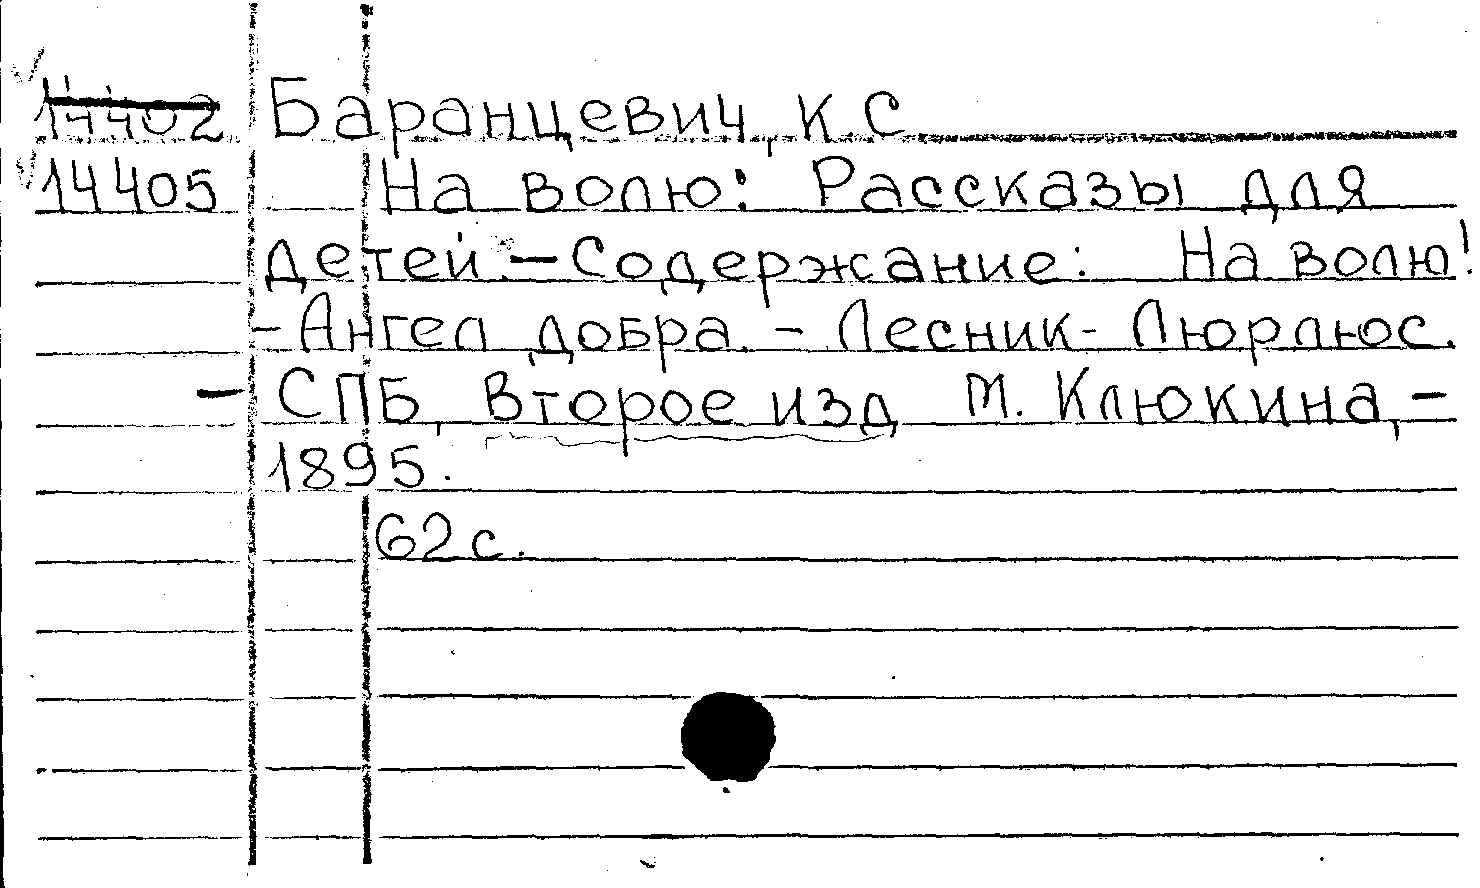 14402 Баранцевич, К. С.
14405 На волю: Рассказы для
детей. – Содержание: На волю!
– Ангел добра. – Лесник – Люрлюс.
– СПБ, Второе изд М. Клюкина, –
1895.
62 с.